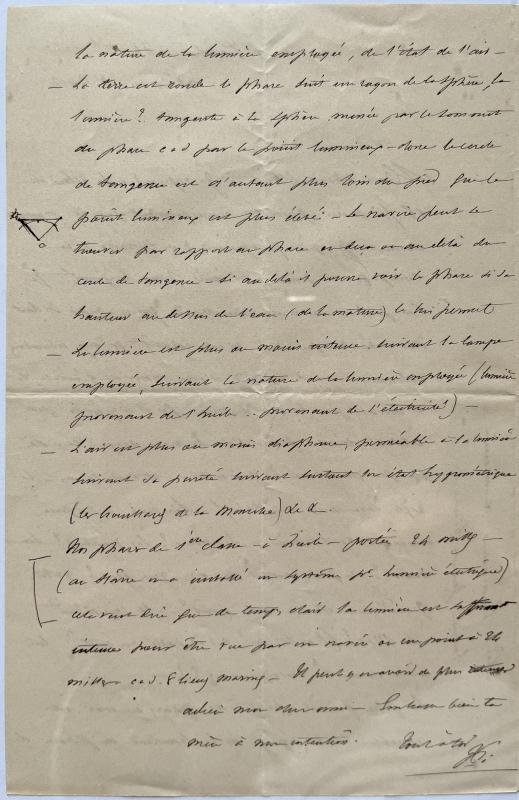 la nature de la lumière employée, de l'état de l'air –
– La terre est ronde le phare suit un rayon de la sphère, la
lumière ? tangente à la sphère menée par le sommet
du phare c a d par le point lumineux – donc le cercle
de tangence est d'autant plus loin du pied que le
point lumineux est plus élevé – Le navire peut se
trouver par rapport au phare en deça ou au delà du
cercle de tangence – Si au delà il pourra voir le phare si sa
hauteur au dessus de l'eau (de la mature) le lui permet
La lumière est plus ou moins intense suivant la lampe
employée, suivant la nature de la lumière employée (lumière
provenant de l'huile .. provenant de l'électricité) –
– L'air est plus ou moins diaphane, perméable à la lumière
suivant sa pureté suivant surtout son état hygrométrique
(les brouillards de la Manche) &c &.
Nos phares de 1ère classe – à huile – portée 24 milles –
(au Havre on a installé un système pr lumière électrique)
cela veut dire que de temps clair la lumière est suffisamment
intense pour être vue par un navire ou un point à 24
milles c a d. 8 lieues marines – Il peut y en avoir de plus
adieu mon cher ami – Embrasse bien ta
mère à mon intention. Tout à toi